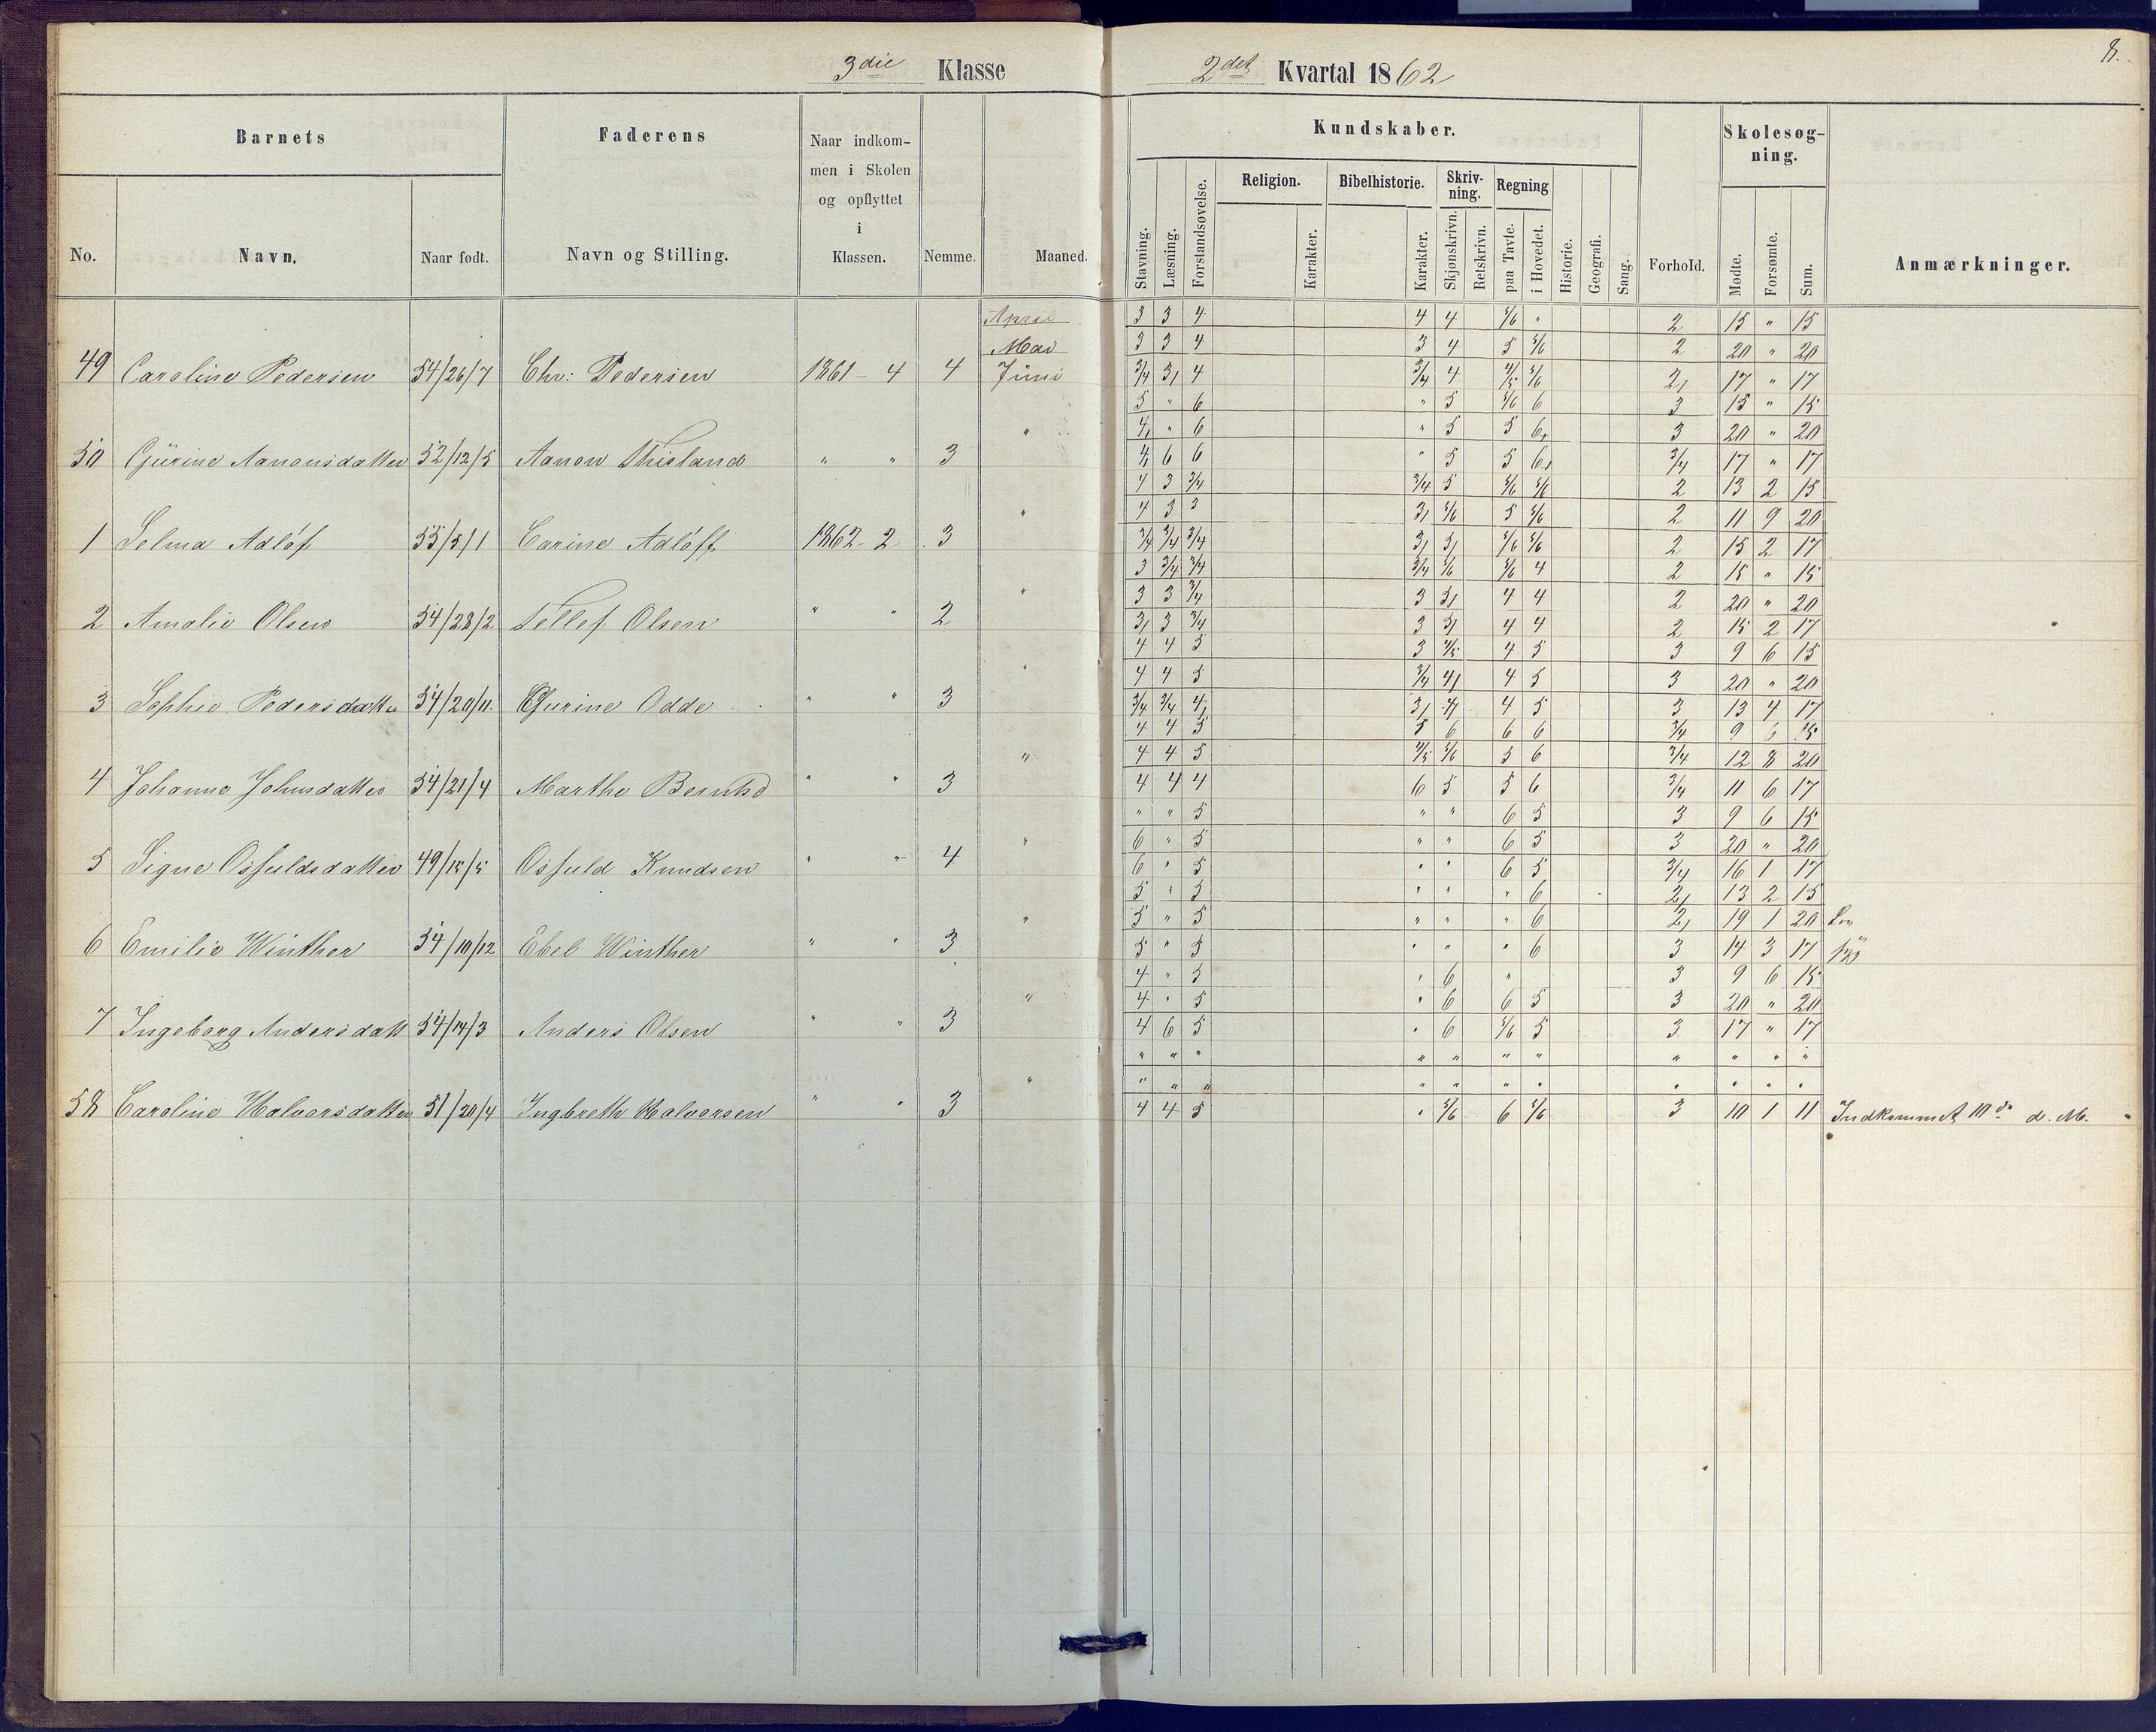 8.
3die Klasse 2det Kvartal 1862
Barnets Faderens Naar indkom-
men i Skolen
og opflyttet
i
Klassen. Nemme. Maaned. Kundskaber. Forhold. Skolesøg-
ning. Anmærkninger.
No. Navn. Naar født. Navn og Stilling.
Stavning. Læsning. Forstandsøvelse. Religion. Karakter. Bibelhistorie. Karakter. Skriv-
ning. Skjønskrivn. Retskrivn. Regning paa Tavle. i Hovedet. Historie. Geografi. Sang. Mødte. Forsømte. Sum.
April 3 3 4 4 4 5/6 " 2 15 " 15
Mai 3 3 4 3 4 5 5/6 2 20 " 20
49 Caroline Pedersen 54/26/7 Chr: Pedersen 1861 - 4 4 Juni 3/4 3/ 4 3/4 4 4/5 5/6 2/ 17 " 17
5 " 6 " 5 5/6 6 3 15 " 15
" 4/ " 6 " 5 5 6/ 3 20 " 20
50 Gurine Aanonsdatter 52/12/5 Aanon Thisland " " 3 4/ 6 6 " 5 5 6/ 3/4 17 " 17
4 3 3/4 3/4 5 5/6 5/6 2 13 2 15
" 4 3 3 3/ 5/6 5 5/6 2 11 9 20
1 Selma Adløf 55/5/1 Carine Adløff 1862 - 2 3 3/4 3/4 3/4 3/ 5/ 5/6 5/6 2 15 2 17
3 3/4 3/4 3/4 5/6 5/6 4 2 15 " 15
" 3 3 3/4 3 5/ 4 4 2 20 " 20
2 Amalie Olsen 54/28/2 Tellef Olsen " " 2 3/ 3 3/4 3 5/ 4 4 2 15 2 17
4 4 5 3 4/5 4 5 3 9 6 15
" 4 4 5 3/4 4/ 4 5 3 20 " 20
3 Sophie Pedersdatter 54/20/11 Gurine Odde " " 3 3/4 3/4 4/ 3/ 4/ 4 5 3 13 4 17
4 4 5 5 6 6 6 3/4 9 6 15
" 4 4 5 4/5 5/6 5 6 3/4 12 8 20
4 Johanne Johnsdatter 54/21/4 Marthe Berntsd " " 3 4 4 4 6 5 5 6 3/4 11 6 17
" " 5 " " 6 5 3 9 6 15
" 6 " 5 " " 6 5 3 20 " 20
5 Signe Osfuldsdatter 49/15/5 Osfuld Knudsen " " 4 6 " 5 " " 6 5 3/4 16 1 17
5 " 5 " " " 6 2/ 13 2 15
" 5 " 5 " " " 6 2/ 19 1 20
6 Emilie Winther 54/10/12 Ebel Winther " " 3 5 " 5 " " " 6 3 14 3 17
4 " 5 " 6 " 3 9 6 15
" 4 " 5 " 6 6 5 3 20 " 20
7 Ingeborg Andersdatt 54/14/3 Anders Olsen " " 3 4 6 5 " 6 5/6 5 3 17 " 17
" " " " " " " " " " "
" " " " " " " " " " " "
58 Caroline Halvorsdatter 51/20/4 Ingbreth Halvorsen " " 3 4 4 5 " 5/6 6 5/6 3 10 1 11 Indkommet 10de d. M.